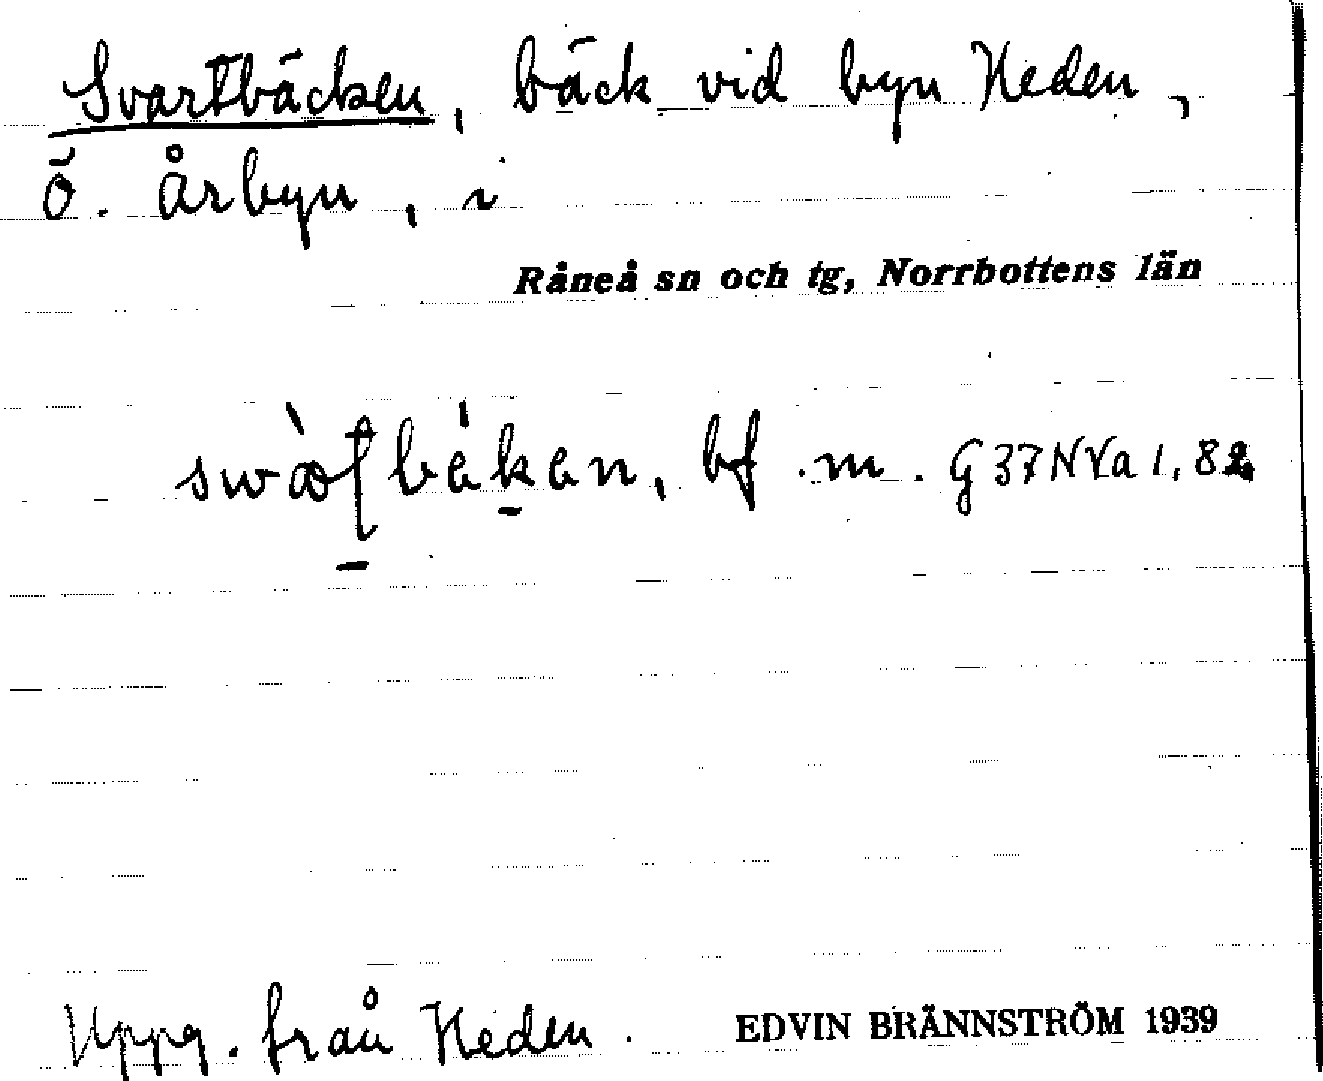 Svartbäcken, bäck vid byn Heden,
Ö. årbyn, i
Råneå sn och tg, Norrbottens län
bf. m. G37NVa 1, 82
Uppg. från Heden.
EDVIN BRÄNNSTRÖM 1939